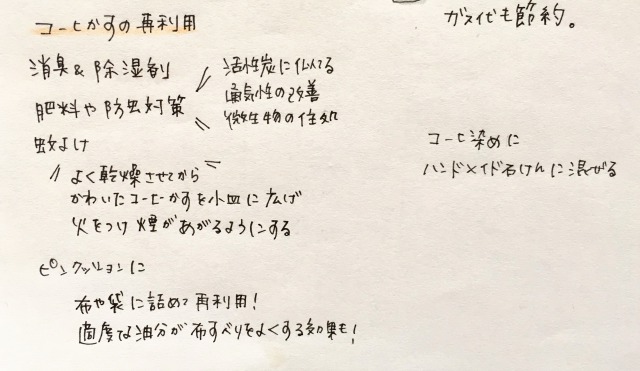 コーヒかすの再利用
消臭&除湿剤
活性炭に似てる
肥料や防虫対策
通気性の改善
微生物の住処
蚊よけ
よく乾燥させてから
かわいたコーヒーかすを小皿に広げ
火をつけ煙があがるようにする
ピンクッションに
布や袋に詰めて再利用!
適度な油分が布すべりをよくする効果も!
ガス代も節約。
コーヒ染めに
ハンドメイド石けんに混ぜる